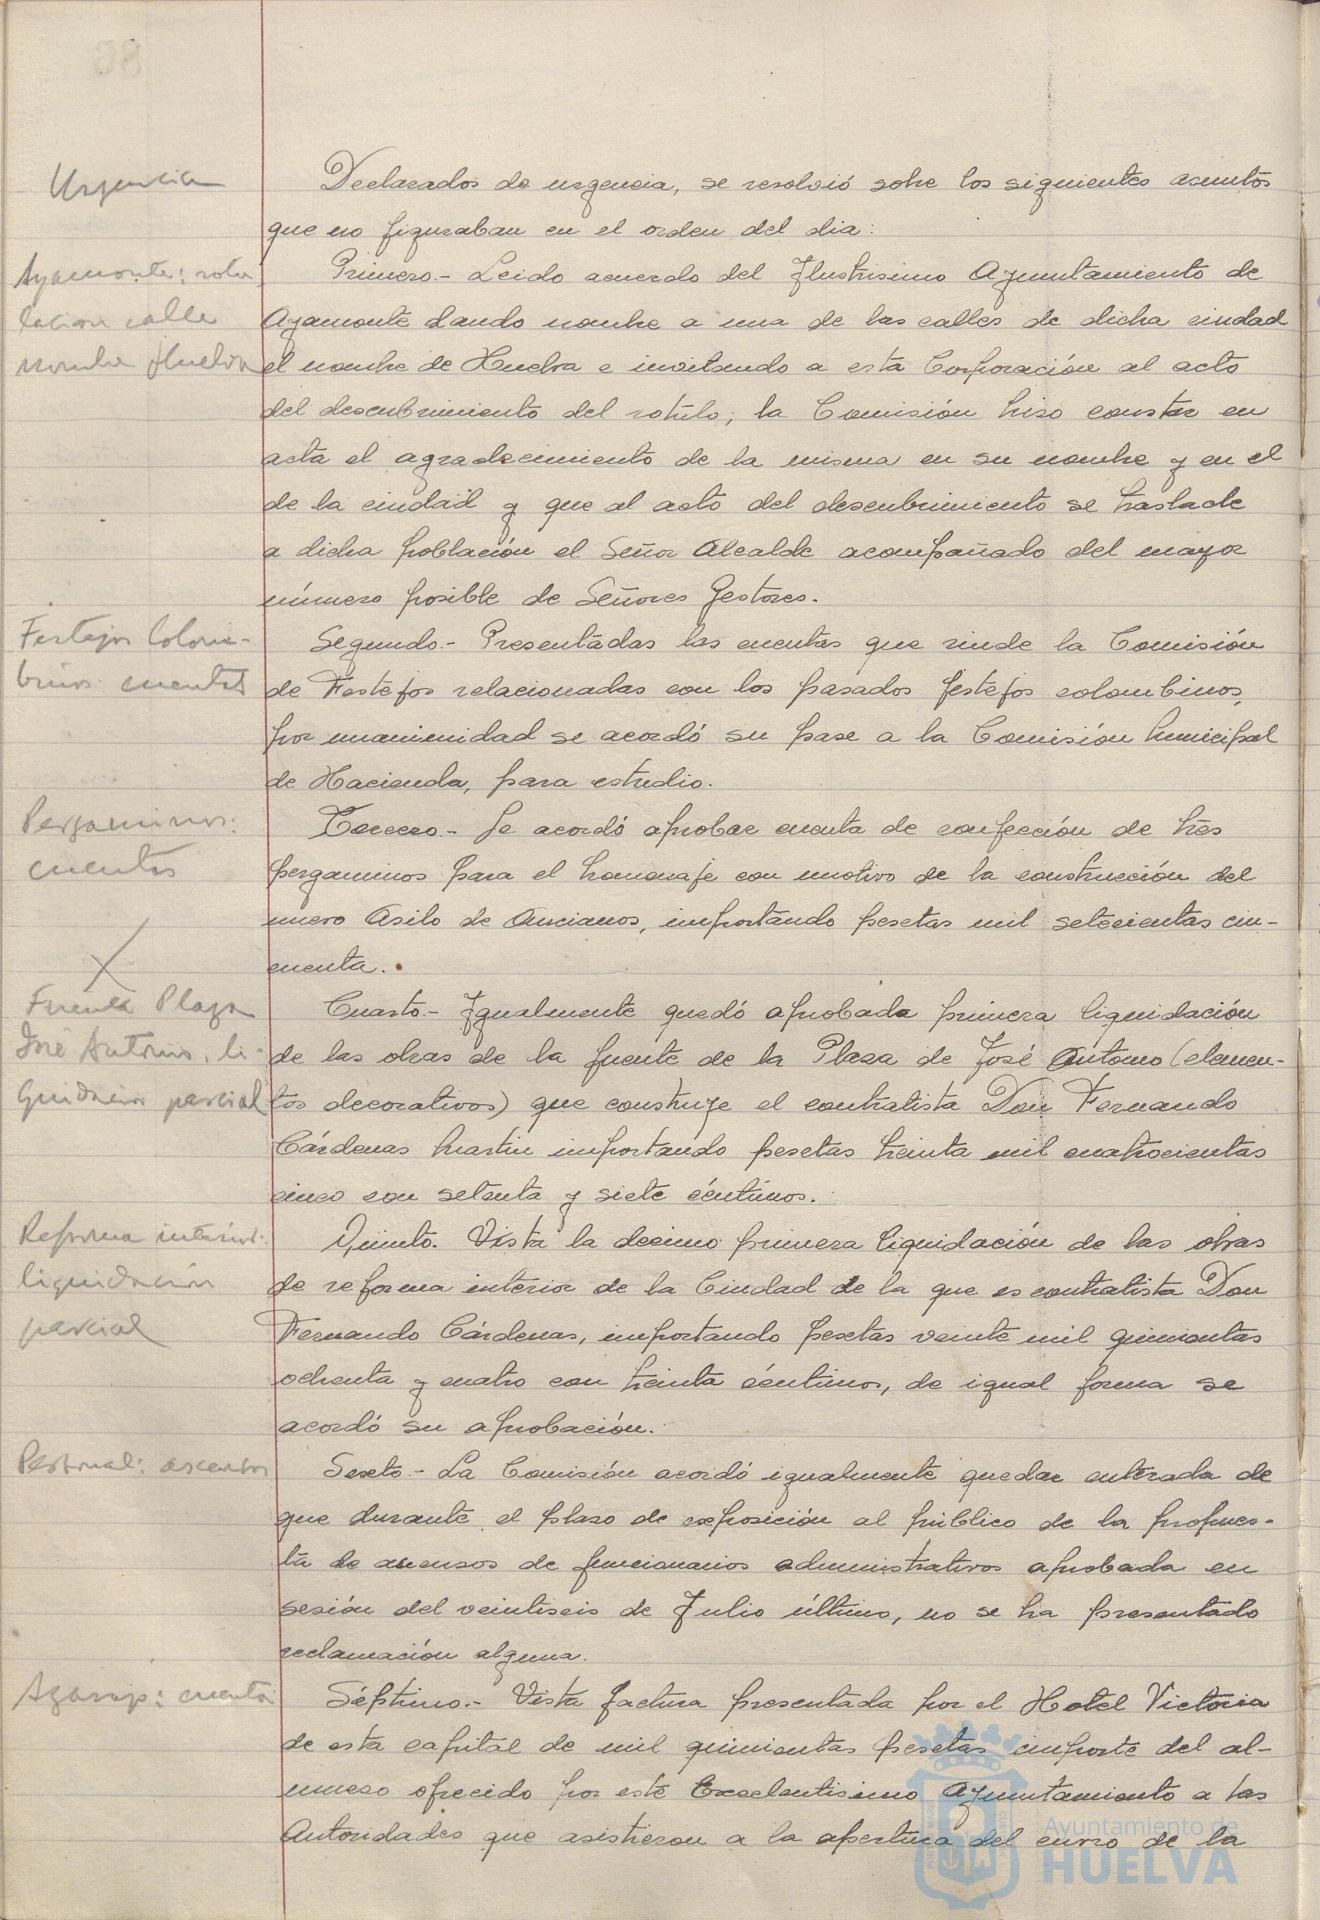 Urgencia
Declarados de urgencia, se resolvió sobre los siguientes asuntos
que no figuraban en el orden del dia:
Ayamonte: rotu
lacion calle
nombre Huelva
Primero.- Leido acuerdo del Ilustrisimo Ayuntamiento de
Ayamonte dando nombre a una de las calles de dicha ciudad
el nombre de Huelva e invitando a esta Corporación al acto
del descubrimiento del rotulo; la Comisión hizo constar en
acta el agradecimiento de la misma en su nombre y en el
de la ciudad y que al acto del descubrimiento se traslade
a dicha población el Señor Alcalde acompañado del mayor
número posible de Señores Gestores.
Festejos Colom-
binos: cuentas
Segundo.- Presentadas las cuentas que rinde la Comisión
de Festejos relacionadas con los pasados festejos colombinos,
por unanimidad se acordó su pase a la Comisión Municipal
de Hacienda, para estudio.
Pergaminos:
cuentas
Tercero.- Se acordó aprobar cuenta de confección de tres
pergaminos para el homenaje con motivo de la construcción del
nuevo Asilo de Ancianos, importando pesetas mil setecientas cin-
cuenta.
X
Fuente Plaza
José Antonio, li-
quidacion parcial
Cuarto.- Igualmente quedó aprobada primera liquidación
de las obras de la fuente de la Plaza de José Antonio (elemen-
tos decorativos) que construye el contratista Don Fernando
Cárdenas Martin importando pesetas treinta mil cuatrocientas
cinco con setenta y siete céntimos.
Reforma interior:
liquidación
parcial
Quinto. Vista la decimo primera liquidación de las obras
de reforma interior de la Ciudad de la que es contratista Don
Fernando Cárdenas, importando pesetas veinte mil quinientas
ochenta y cuatro con treinta céntimos, de igual forma se
acordó su aprobación.
Personal: ascensos
Sexto.- La Comisión acordó igualmente quedar enterada de
que durante el plazo de exposición al público de la propues-
ta de ascensos de funcionarios administrativos aprobada en
sesión del veintiseis de Julio último, no se ha presentado
reclamación alguna.
Agasajo: cuenta
Séptimo.- Vista factura presentada por el Hotel Victoria
de esta capital de mil quinientas pesetas importe del al-
muerzo ofrecido por este Excelentisimo Ayuntamiento a las
Autoridades que asistieron a la apertura del curso de la
Ayuntamiento de
HUELVA